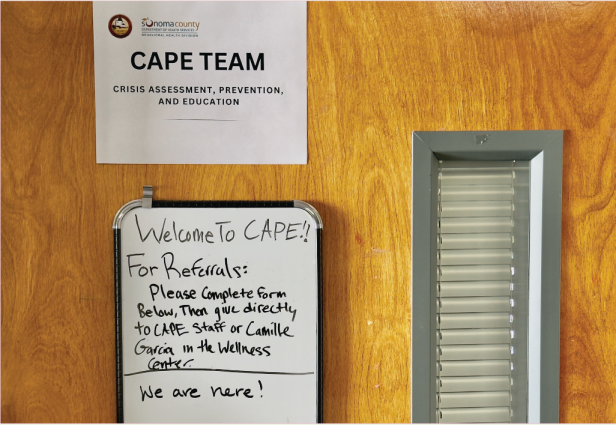 sonomacounty
DEPARTMENT OF HEALTH SERVICES
BEHAVIORAL HEALTH DIVISION
CAPE TEAM
CRISIS ASSESSMENT, PREVENTION,
AND EDUCATION
Welcome To CAPE!!
For Referrals:
Please Complete Form
Below, Then give directly
to CAPE Staff or Camille
Garcia in the Wellness
Center.
We are here!